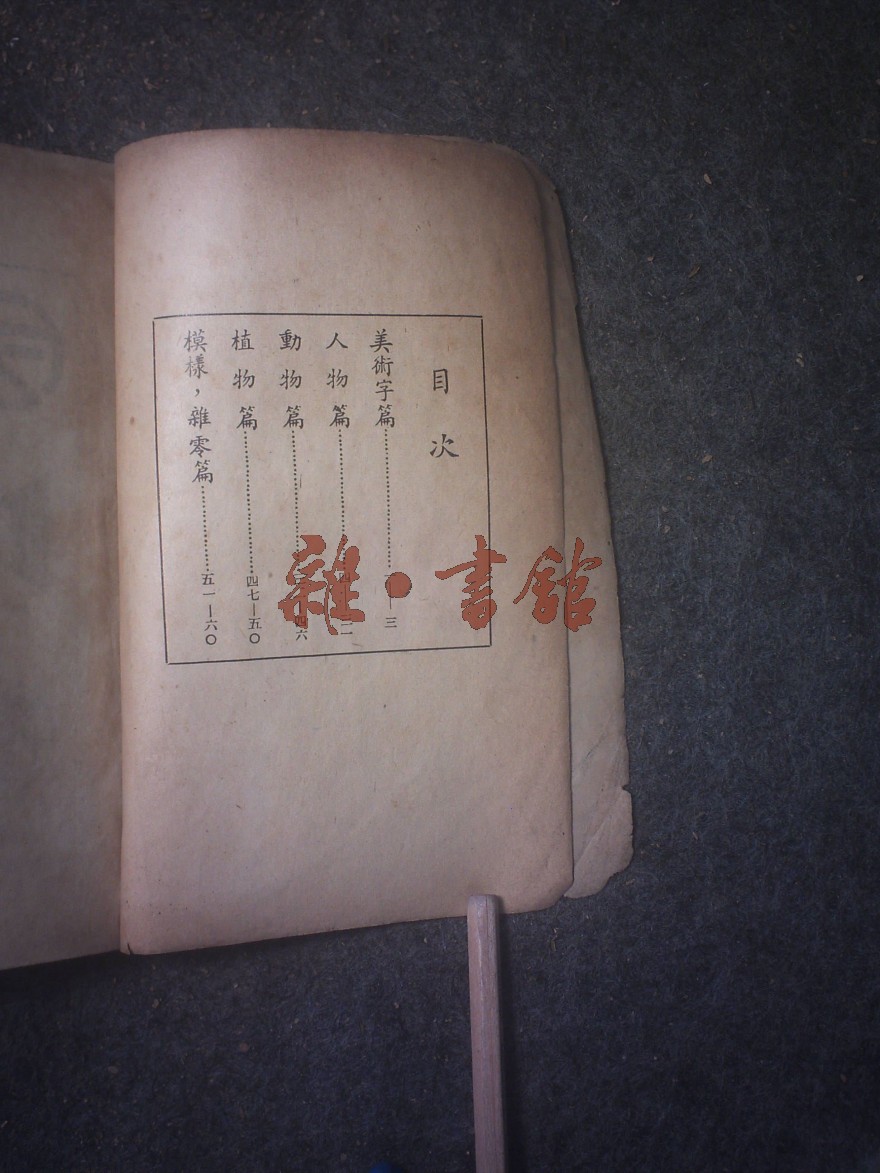 目次
美術字篇……………………—三
人物篇……………………二
動物篇……………………四六
植物篇……………………四七—五〇
模樣，雜零篇……………五一—六〇
雜·書館